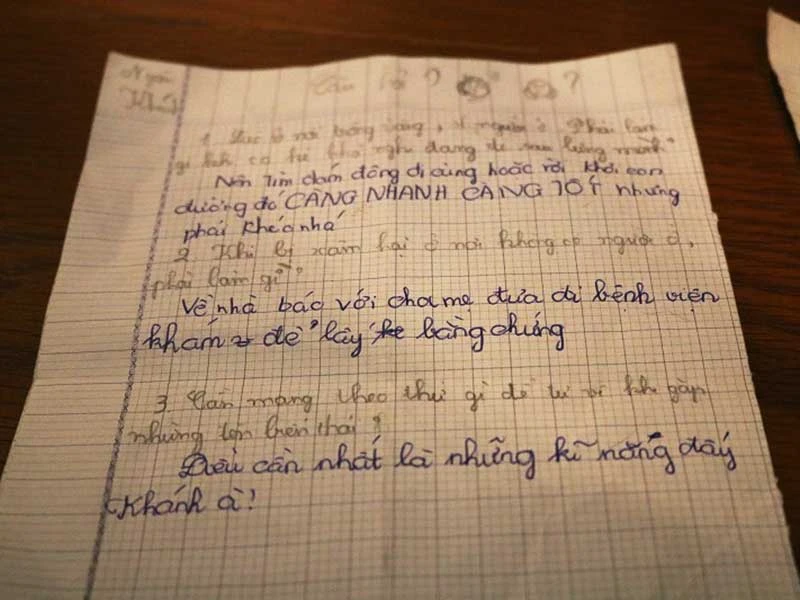 ?
?
1 ở nơi , người ở Phải làm
gì khi có kẻ khả nghi đang đi sau lưng mình
Nên Tìm đám đông đi cùng hoặc rời khỏi con
đường đó CÀNG NHANH CÀNG TỐT nhưng
phải khéo nhá
2 Khi bị xâm hại ở nơi không có người ở,
phải làm gì?
Về nhà báo với cha mẹ đưa đi bệnh viện
khám để lấy bằng chứng
3 Cần mang theo thứ gì để tự vệ khi gặp
những tên biến thái?
Điều cần nhất là những kĩ năng đấy
Khánh à!